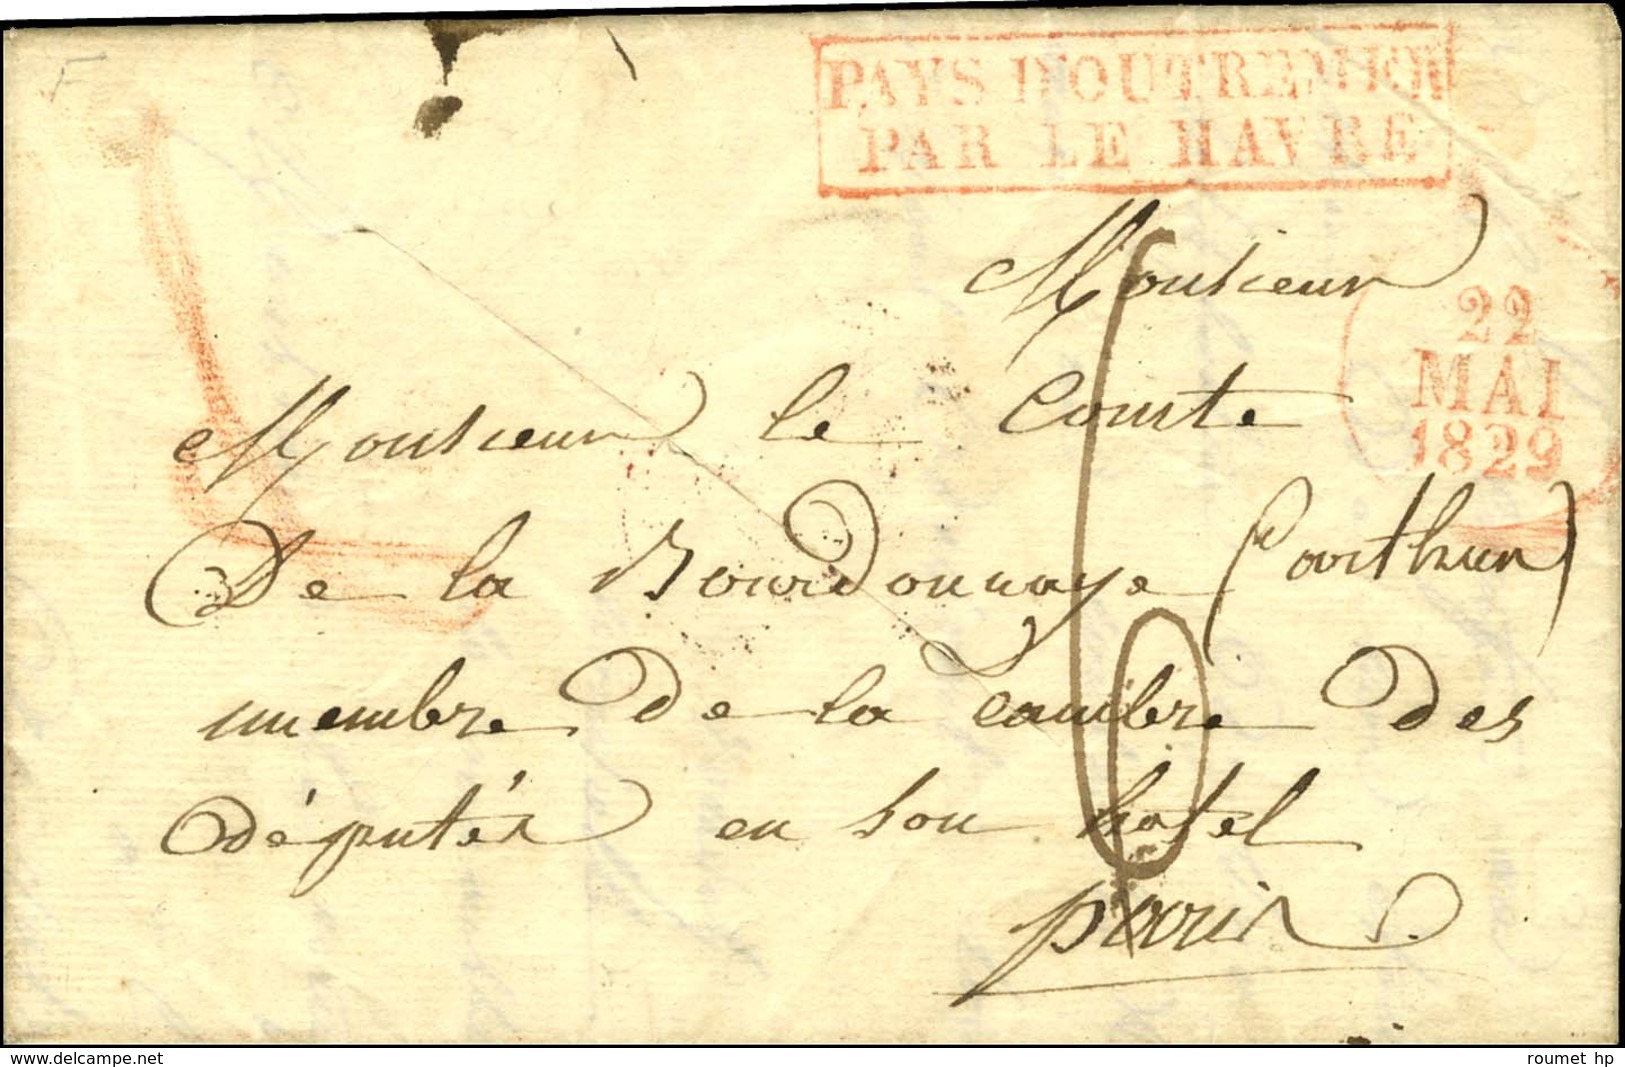 F
PAYS D'OUTREMER
PAR LE HAVRE
Monsieur
22
MAI
1829
Monsieur le Comte
De la Bourdonnaye (arthur)
membre de la Cambre des
députés en son hotel
paris
6
delcampe.net
roumet hp